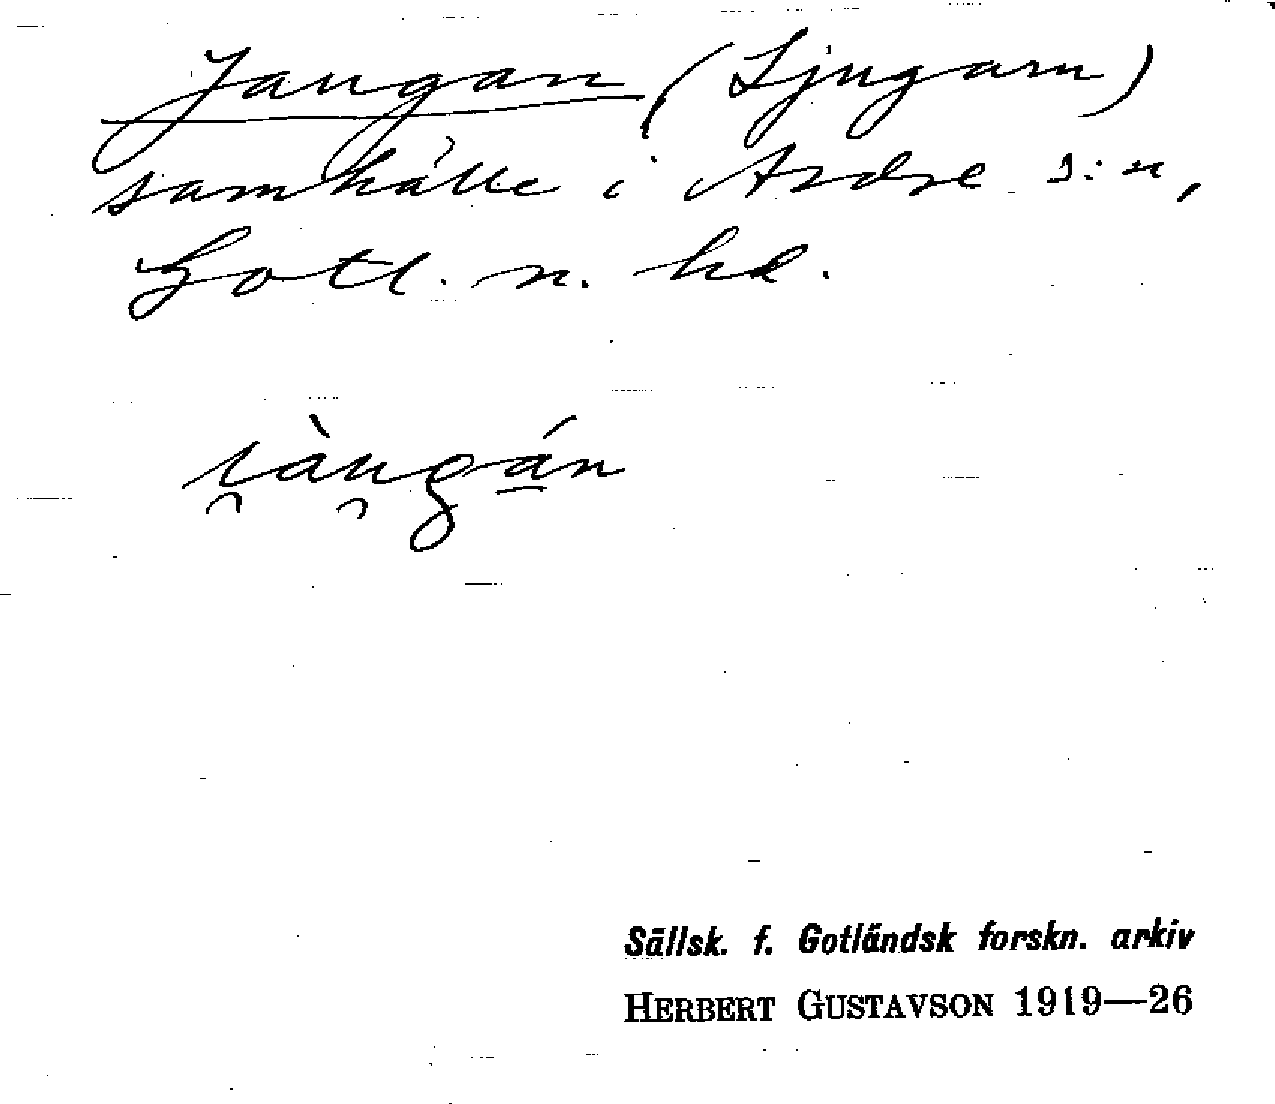 Jaugan (Ljugarn)
samhälle i Ardre s:n,
Gotl. n. hd.
i̯àu̯gá̱n
Sällsk. f. Gotländsk forskn. arkiv
HERBERT GUSTAVSON 1919—26